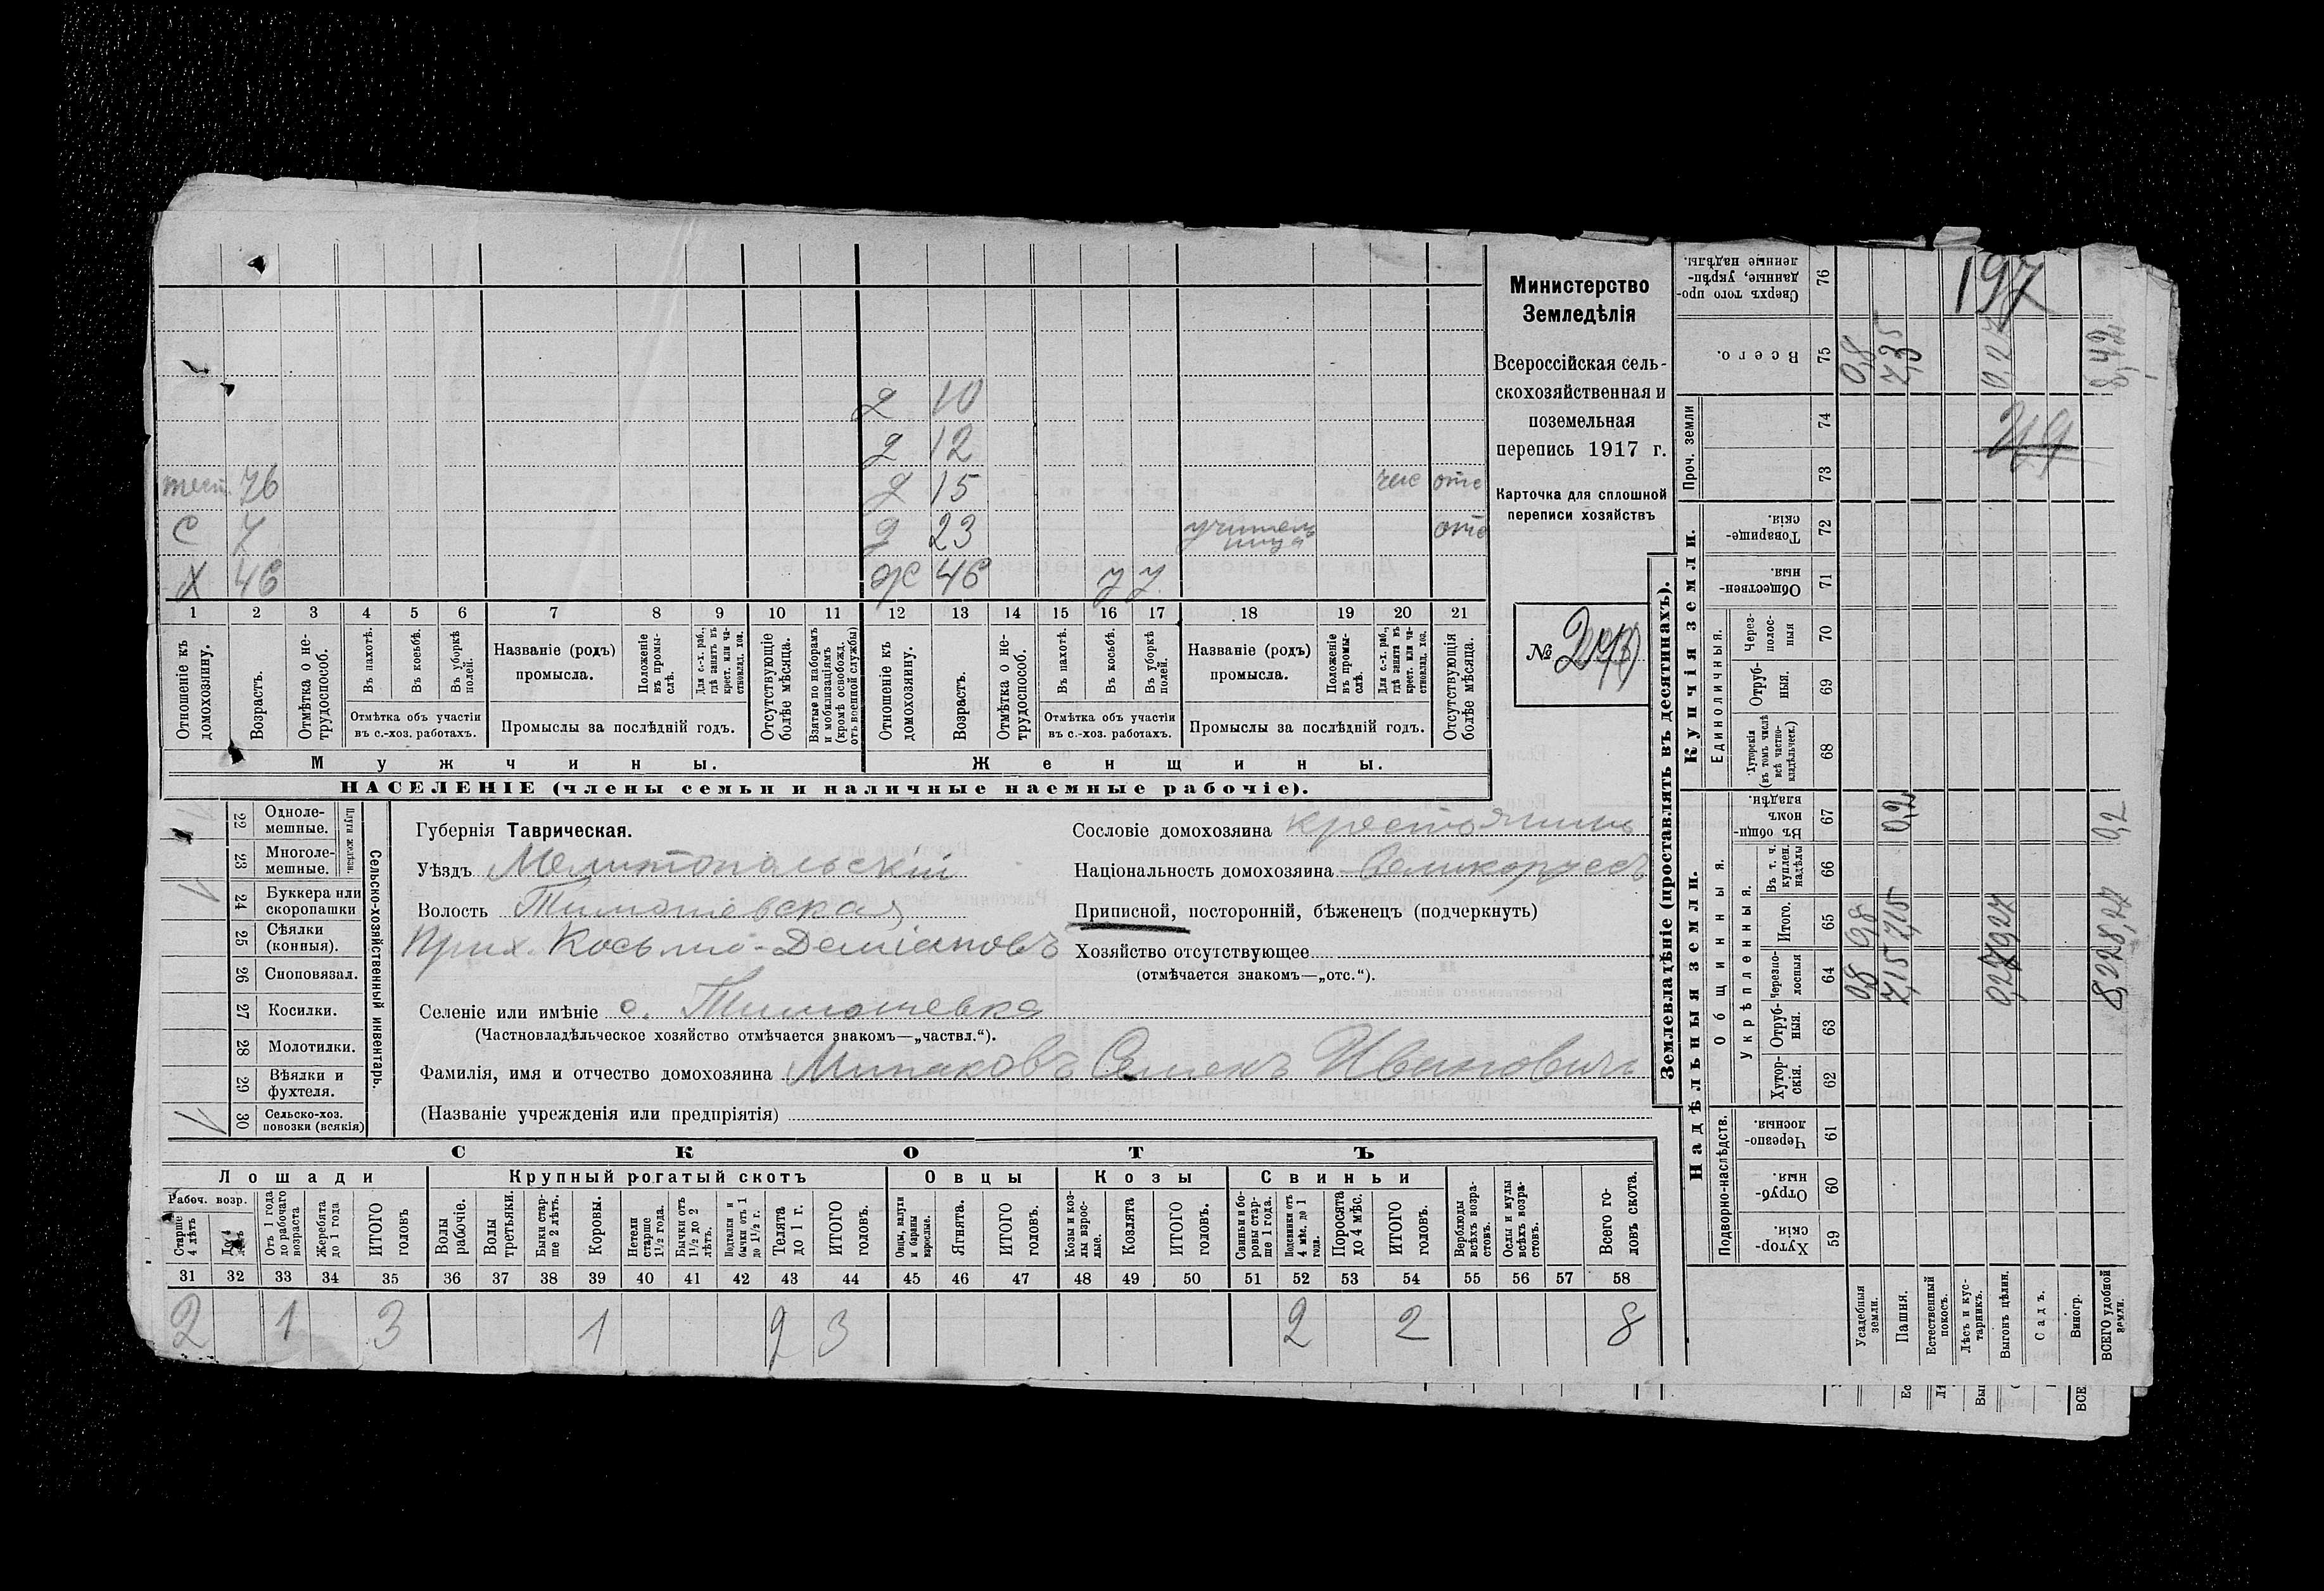 Министерство
Земледѣлія
Всероссійская сель-
скохозяйственная и
поземельная
перепись 1917 г.
Карточка для сплошной
переписи хозяйствъ
№
197
д 10
д 12
тест. 76 д 15 отс
С 7 д 23 учительница отс
Х 46 ж 46 у у
1 2 3 4 5 6 7 8 9 10 11 12 13 14 15 16 17 18 19 20 21
Отношеніе къ домохозяину.
Возрастъ.
Отмѣтка о не-трудоспособ.
Въ пахотѣ.
Въ косьбѣ.
Въ уборкѣ полей.
Отмѣтка объ участіи
въ с.-хоз. работахъ.
Названіе (родъ)
промысла.
Положеніе въ промы-слѣ.
Для с.-х. раб., гдѣ занятъ въ крест. или ча-стновлад. хоз.
Промыслы за послѣдній годъ.
Отсутствующіе болѣе мѣсяца.
Взятые по наборамъ и мобилизаціямъ (кромѣ освобожд. отъ военной службы)
Отношеніе къ домохозяину.
Возрастъ.
Отмѣтка о не-трудоспособ.
Въ пахотѣ.
Въ косьбѣ.
Въ уборкѣ полей.
Отмѣтка объ участіи
въ с.-хоз. работахъ.
Названіе (родъ)
промысла.
Положеніе въ промы-слѣ.
Для с.-х. раб., гдѣ занята въ крест. или ча-стновлад. хоз.
Промыслы за послѣдній годъ.
Отсутствующія болѣе мѣсяца.
Мужчины. Женщины.
НАСЕЛЕНІЕ (члены семьи и наличные наемные рабочіе).
Сельско-хозяйственный инвентарь.
Плуги желѣзн.
22 Одноле-мешные.
23 Многоле-мешные.
24 Буккера или скоропашки
25 Сѣялки (конныя).
26 Сноповязал.
27 Косилки.
28 Молотилки.
29 Вѣялки и фухтеля.
30 Сельско-хоз. повозки (всякія)
Губернія Таврическая.
Уѣздъ Мелитопальскій
Волость Тимошевская
Прих. Косьмо-Деміановъ
Селеніе или имѣніе с. Тимошевка
(Частновладѣльческое хозяйство отмѣчается знакомъ—„частвл.“).
Фамилія, имя и отчество домохозяина Минаковъ Семенъ Ивановичъ
(Названіе учрежденія или предпріятія)
Сословіе домохозяина крестьянинъ
Національность домохозяина Великорусъ
Приписной, посторонній, бѣженецъ (подчеркнуть)
Хозяйство отсутствующее
(отмѣчается знакомъ—„отс.“).
СКОТЪ
Лошади Крупный рогатый скотъ Овцы Козы Свиньи
Рабоч. возр.
Старше 4 лѣтъ
До 4 лѣтъ
Отъ 1 года до рабочаго возраста
Жеребята до 1 года
ИТОГО головъ
Волы рабочіе.
Волы третьяки.
Быки стар-ше 2 лѣтъ.
Коровы.
Нетели старше 1½ года.
Бычки отъ 1½ до 2 лѣтъ.
Подтелки и бычки отъ 1 до 1½ г.
Телята до 1 г.
ИТОГО головъ.
Овцы, валухи и бараны взрослые.
Ягнята.
ИТОГО головъ.
Козы и коз-лы взрос-лые.
Козлята
ИТОГО головъ.
Свиньи и бо-ровы стар-ше 1 года.
Подсвинки отъ 4 мѣс. до 1 года.
Поросята до 4 мѣс.
ИТОГО головъ.
Верблюды всѣхъ возра-стовъ.
Ослы и мулы всѣхъ возра-стовъ.
Всего го-ловъ скота.
31 32 33 34 35 36 37 38 39 40 41 42 43 44 45 46 47 48 49 50 51 52 53 54 55 56 57 58
2 1 3 1 2 3 2 2 8
Землевладѣніе (проставлять въ десятинахъ).
Надѣльныя земли. Купчія земли.
Подворно-наслѣдств.
Общинныя.
Укрѣпленныя.
Единоличныя.
Проч. земли
Хутор-скія. 59
Отруб-ныя. 60
Черезпо-лосныя. 61
Хутор-скія. 62
Отруб-ныя. 63
Черезпо-лосныя 64
Итого. 65
Въ т. ч. куплен. надѣлы 66
Въ общи-номъ владѣн. 67
Хуторскія (въ томъ числѣ всѣ частно-владѣльческ.) 68
Отруб-ныя. 69
Через-полос-ныя 70
Обществен-ныя. 71
Товарище-скія. 72
73
74
Всего. 75
Сверхъ того про-данные, укрѣп-ленные надѣлы. 76
Усадебныя земли. 0,8 0,8 0,8
Пашня. 7,15 7,15 0,2 7,35
Естественный покосъ.
Лѣсъ и кус-тарникъ.
Выгонъ цѣлин. 0,27 0,27 0,27
Садъ.
Виногр.
ВСЕГО удобной земли. 8,22 8,22 0,2 8,42